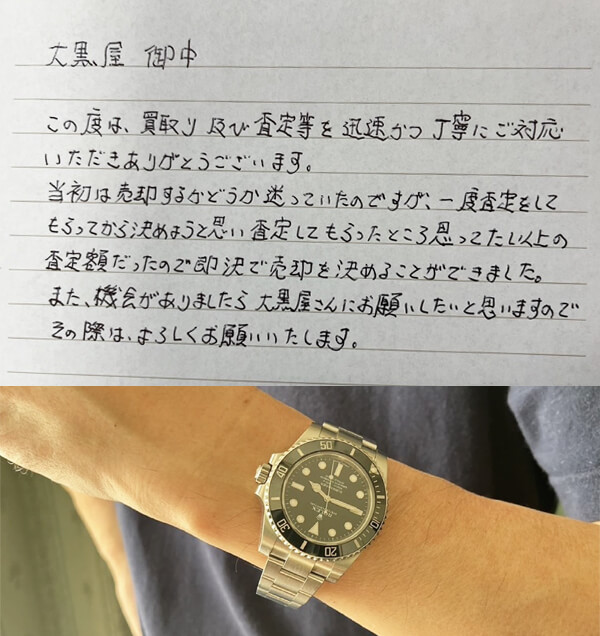 大黒屋 御中
この度は、買取り及び査定等を迅速かつ丁寧にご対応
いただきありがとうございます。
当初は売却するかどうか迷っていたのですが、一度査定をして
もらってから決めようと思い査定してもらったところ思ってたい以上の
査定額だったので即決で売却を決めることができました。
また、機会がありましたら大黒屋さんにお願いしたいと思いますので
その際は、よろしくお願いいたします。
10
20
30
40
50
ROLEX